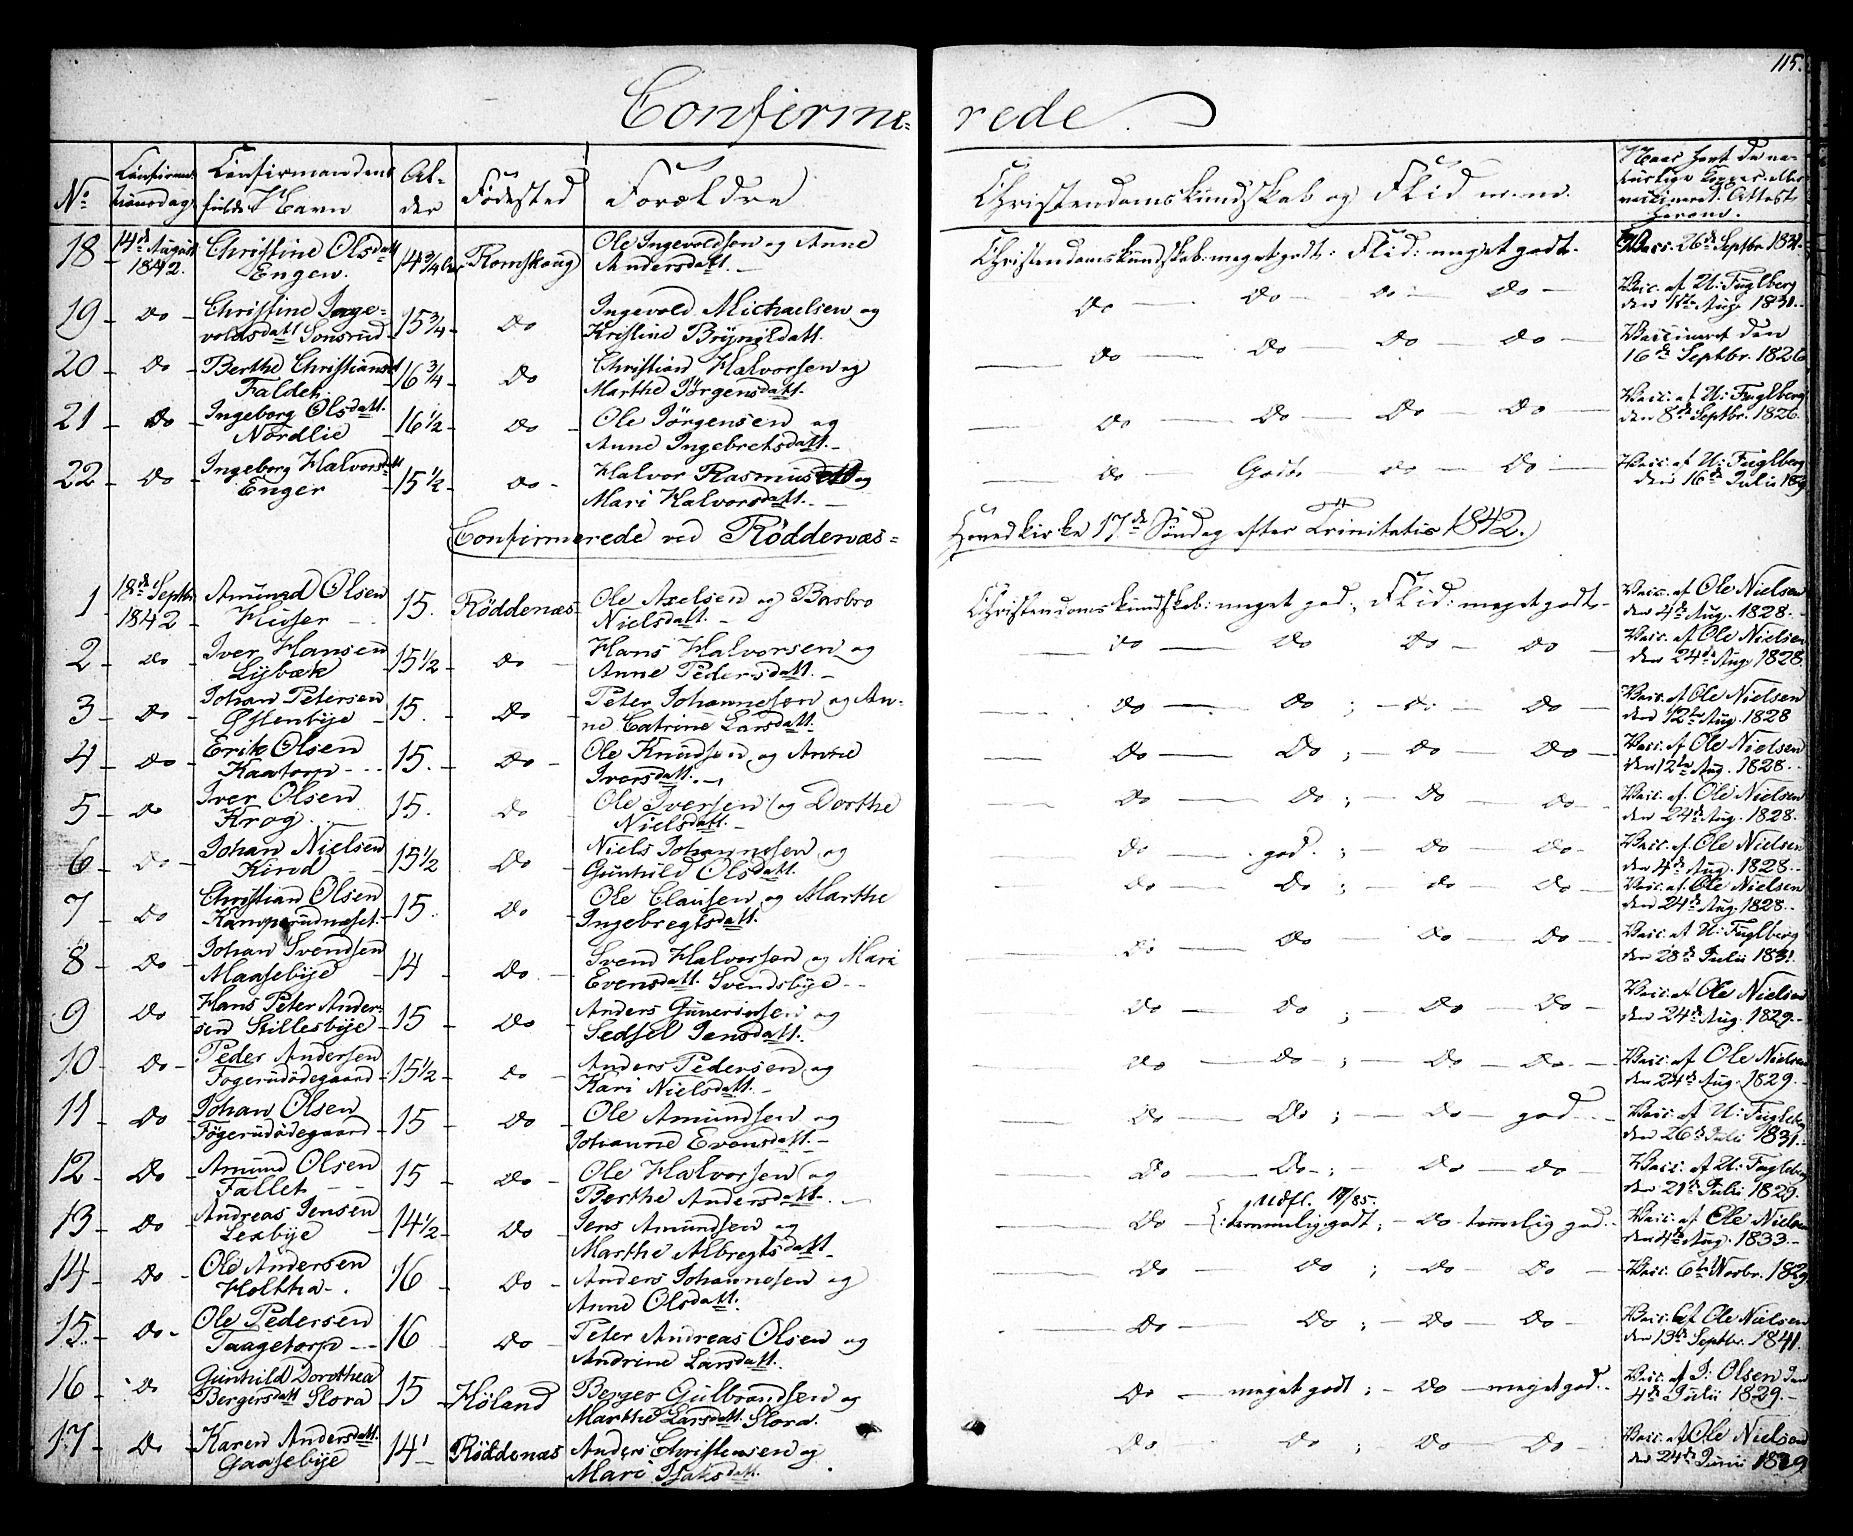 115.
Confirme= rede.
No Confirmationsdag Confirmandens fulde Navn Alder Fødested Forældre Christendomskundskab og Flid m. m. Naar havt de naturlige Kopper eller vaccineret. Attest herom.
18 14de August 1842. Christine Olsdatt Engen. 14 3/4 Romskoug Ole Ingevoldsen og Anne Andersdatt. Christendomskundskab: meget godt: Flid: meget godt. Vacc. 26de Septbr 1831.
19 do Christine Ingevoldsdatt Sonsrud 15 3/4 do Ingevold Michaelsen og Kristine Brynildatt. do do do do Vacc. af U: Fuglberg den Aug. 1831.
20 do Berthe Christiansdt Faldet. 16 3/4 do Christian Halvorsen og Marthe Jørgensdatt. do do do do Vaccineret den 16de Septbr. 1826
21 do Ingeborg Olsdatt. Nordlie 16 1/2 do Ole Jörgensen og Anne Ingebretsdatt. do do do do Vacc. af U: Fuglberg den 8de Septbr. 1826.
22 do Ingeborg Halvorsdtt Enger 15 1/2 do Halvor Rasmus og Mari Halvorsdatt. do Godt do do Vacc. af U: Fuglberg den 16de Julii
Confirmerede ved Röddenæs= Hovedkirke 17de Søndag efter Trinitatis 1842.
1 18de Septbr 1842 Amund Olsen Kluser 15. Röddenæs Ole Axelsen og Barbro Nielsdatt. Christendomskundskab: meget god; Flid: meget godt. Vacc. af Ole Nielsen den 4de Aug. 1828.
2 do Iver Hansen Lybæk 15 1/2 do Hans Halvorsen og Anne Pedersdatt. do do do do Vacc. af Ole Nielsen den 24de Aug. 1828.
3 do Johan Petersen Østenbye 15. do Peter Johannesen og Anne Catrine Larsdatt. do do ; do do Vacc. af Ole Nielsen den 12te Aug. 1828
4 do Erik Olsen Kaatorp 15. do Ole Knudsen og Anne Iversdatt. do do ; do do Vacc. af Ole Nielsen den 12te Aug. 1828.
5 do Iver Olsen Krog 15. do Ole Iversen og Dorthe Nielsdatt. do do ; do do Vacc. af. Ole Nielsen den 24de Aug. 1828.
6 do Johan Nielsen Kind 15 1/2 do Niels Johannesen og Gunhild Olsdatt. do god. ; do do Vacc. af. Ole Nielsen den 4de Aug. 1828.
7 do Christian Olsen Kamperudnæset 15. do Ole Clausen og Marthe Ingebregtsdatt. do do ; do do Vacc. af. Ole Nielsen den 24de Aug. 1828.
8 do Johan Svendsen Maasebye 14 do Svend Halvorsen og Mari Evensdatt. Svendsbye do do do do Vacc. af U: Fuglberg den 28de Julii 1831.
9 do Hans Peter Andersen Stillesbye 15 do Anders Gunersen og Sedsel Jensdatt. do do ; do do Vacc. af Ole Nielsen den 24de Aug. 1829.
10 do Peder Andersen Fogerudødegaard 15 1/2 do Anders Pedersen og Kari Nielsdatt. do do ; do do. Vacc. af Ole Nielsen den 24de Aug. 1829.
11 do Johan Olsen Fögerudødegaard 15 do Ole Amundsen og Johanne Evensdatt. do do ; do god Vacc. af U: Fuglberg den 26de Julii 1831.
12 do Amund Olsen Fallet 15 do Ole Halvorsen og Berthe Andersdatt. do do ; do do Vacc. af U: Fuglberg den 21de Julii 1829.
13 do Andreas Jensen Lexbye 14 1/2 do Jens Amundsen og Marthe Albregtsdatt do Udfl. /85. temmelig godt; do temmelig god Vacc. af Ole Nielsen den 4de Aug. 1833.
14 do Ole Andersen Holtha 16 do Anders Johannesen og Anne Olsdatt. do do ; do do Vacc. 6te Novbr. 1829
15. do Ole Pedersen Taagetorp 16 do Peter Andreas Olsen og Andrine Larsdatt. do do ; do do Vacc. af Ole Nielsen den 13de Septbr. 1841.
16 do Gunhild Dorothea Bergersdatt Slora 15 Höland Berger Gulbrandsen og Marthe Larsdatt. Slora. do meget godt ; do meget god. Vacc. af I: Olsen den 4de Julii 1829.
17 do Karen Andersdatt. Gaasebye 14 Röddenæs Anders Christensen og Mari Isaksdatt. do do ; do do Vacc. af Ole Nielsen den 24de Junii 1829